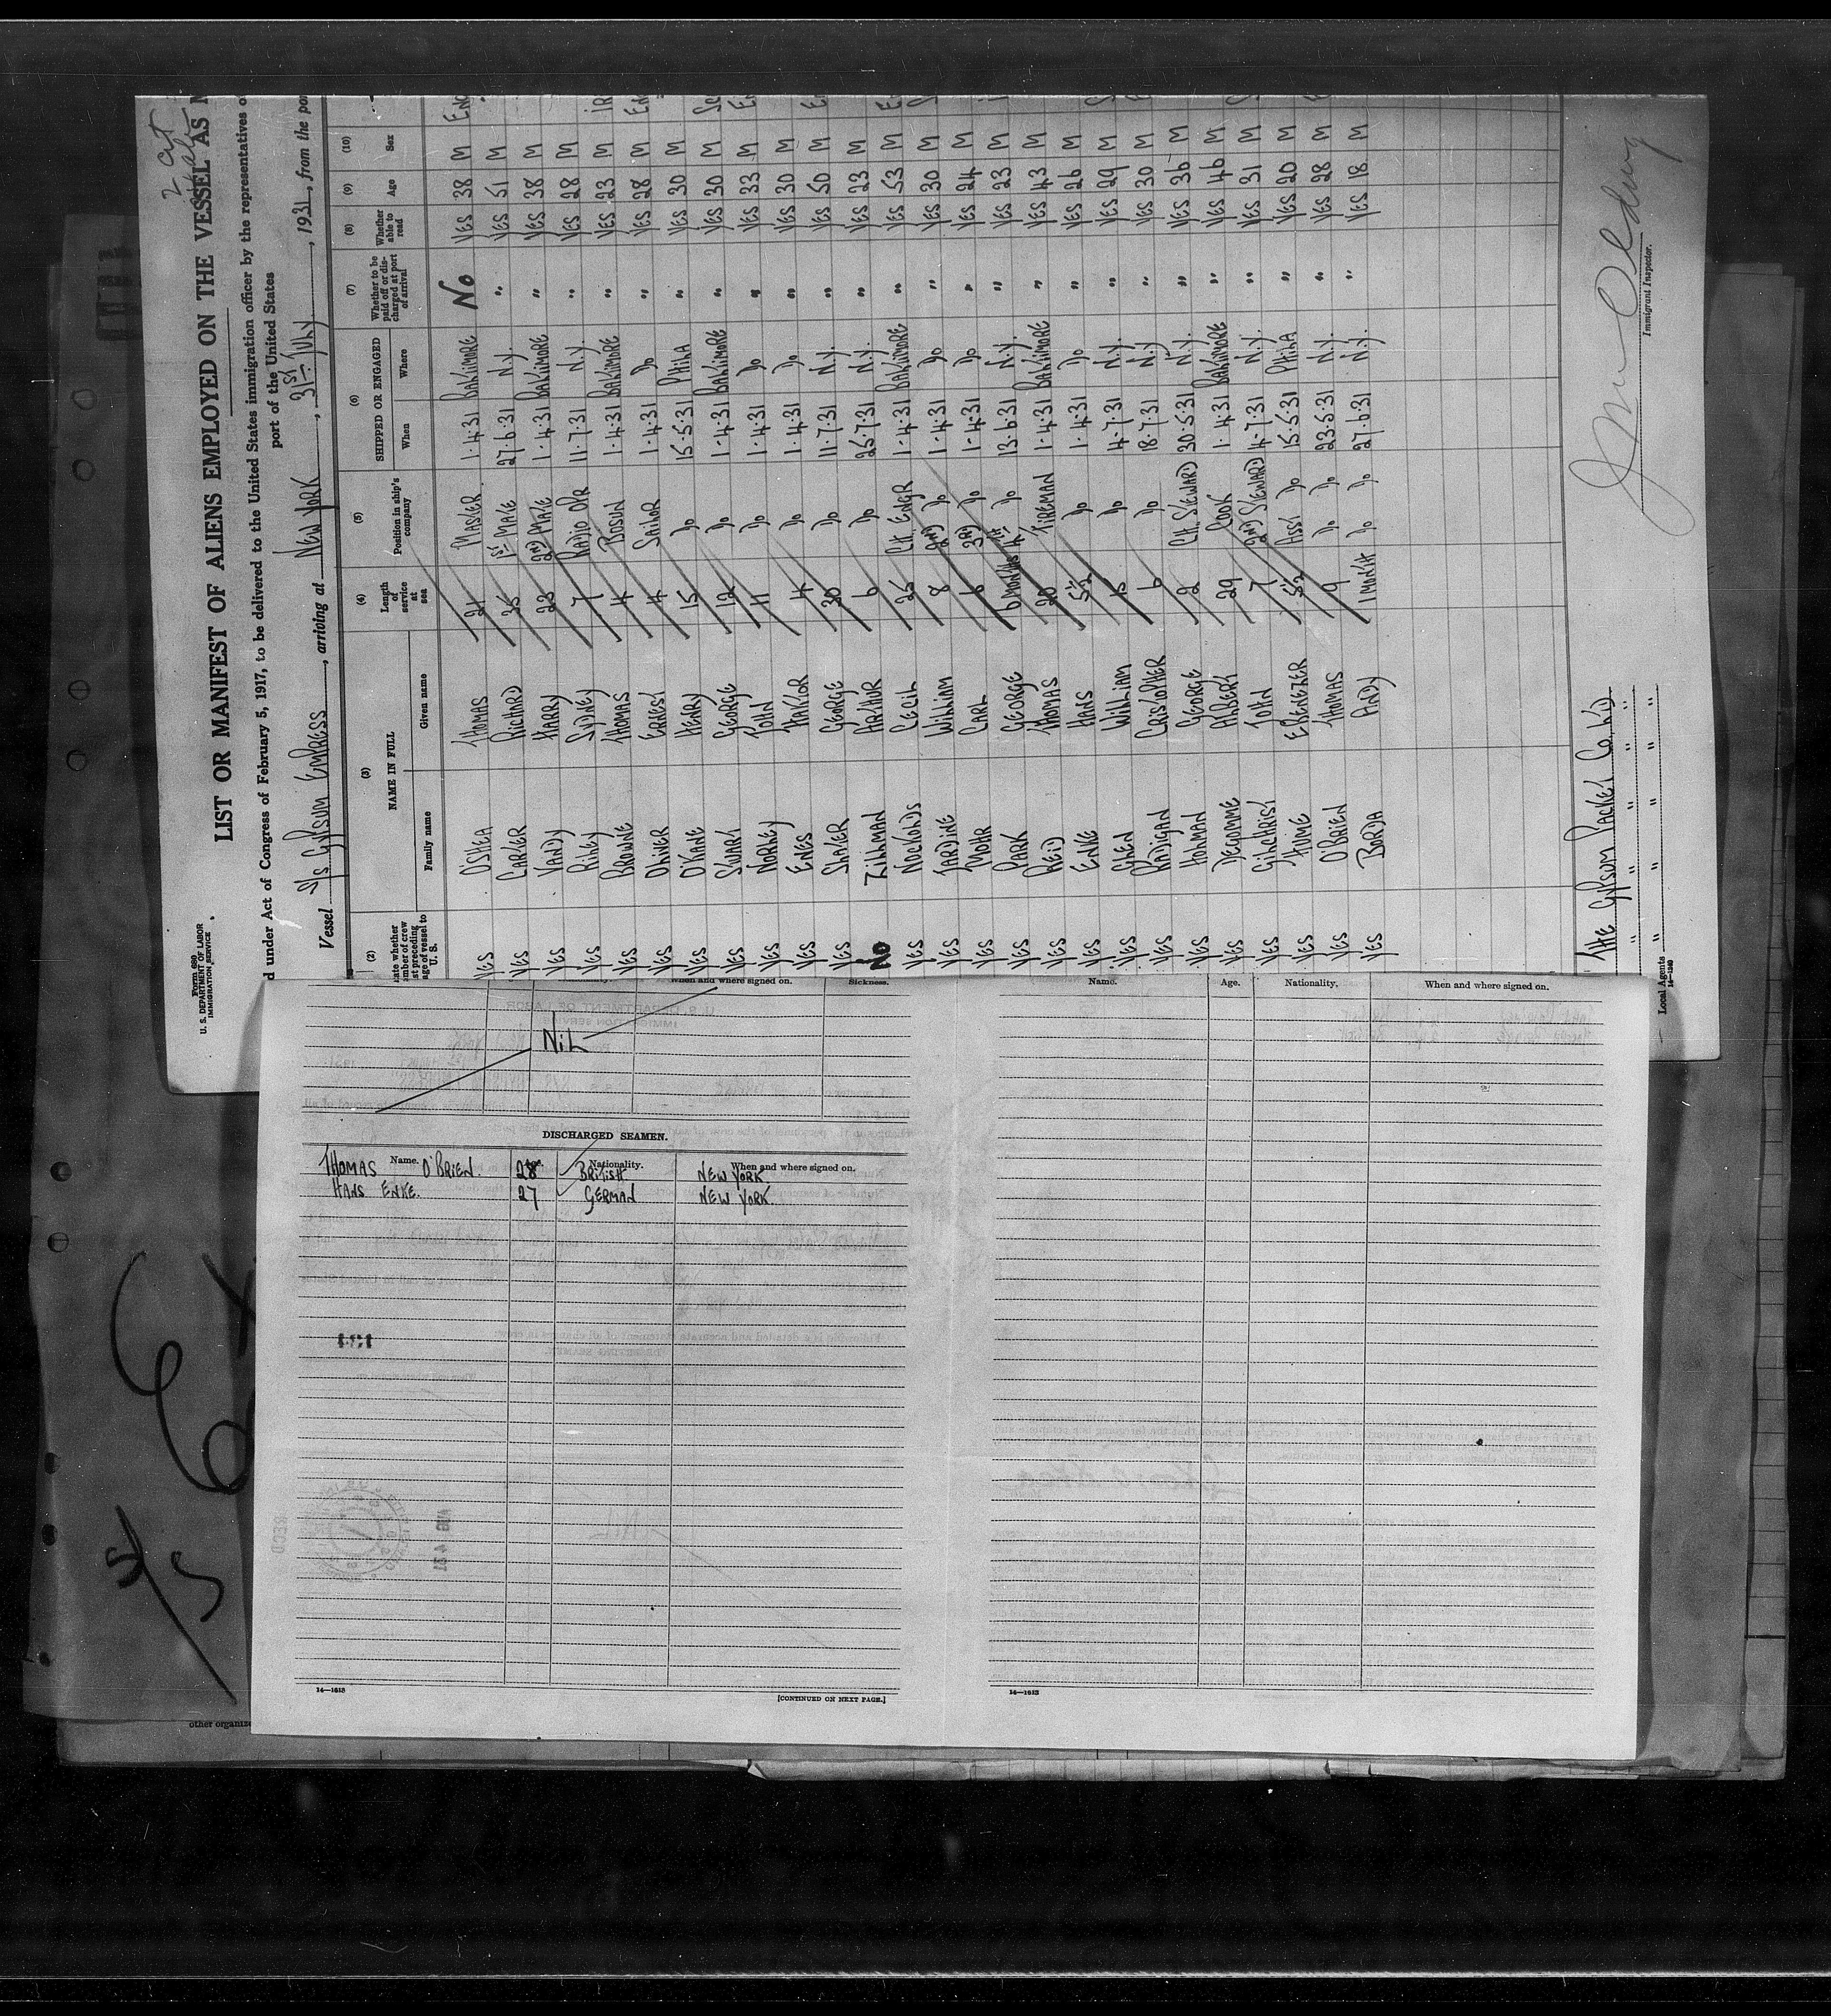 Form 680
U. S. DEPARTMENT OF LABOR
IMMIGRATION SERVICE
2 Cpt
LIST OR MANIFEST OF ALIENS EMPLOYED ON THE VESSEL AS
d under Act of Congress of February 5, 1917, to be delivered to the United States immigration officer by the representatives
port of the United States
Vessel S/S GYPSUM EMPRESS, arriving at NEW YORK, 31st JULY, 1931, from the por
(2) (3) (4) (5) (6) (7) (8) (9) (10)
NAME IN FULL SHIPPED OR ENGAGED
Family name Given name Length of service at sea Position in ship's company When Where Whether to be paid off or discharged at port of arrival Whether able to read Age Sex
YES O'SHEA THOMAS 21 MASTER 1.4.31 BALTIMORE NO YES 38 M ENG
YES CARTER RICHARD 35 1ST MATE 27.6.31 N.Y. " YES 51 M
YES VANDY HARRY 23 2ND MATE 1.4.31 BALTIMORE " YES 38 M
YES RILEY SYDNEY 7 RADIO OPR 11.7.31 N.Y. " YES 28 M
YES BROWNE THOMAS 4 BOSUN 1.4.31 BALTIMORE " YES 23 M IR
YES OLIVER ERNEST 4 SAILOR 1.4.31 DO " YES 28 M ENG
YES O'KANE HENRY 15 DO 15.5.31 PHILA " YES 30 M
YES SWART GEORGE 12 DO 1.4.31 BALTIMORE " YES 30 M Sc
YES NORLEY JOHN 11 DO 1.4.31 DO " YES 33 M E
YES ENES TAYLOR 4 DO 1.4.31 DO " YES 30 M
YES SLATER GEORGE 30 DO 11.7.31 N.Y. " YES 50 M E
NO ZILLMAN ARTHUR 6 DO 25.7.31 N.Y. " YES 23 M
YES NOCKOLDS CECIL 25 CH. ENGR 1.4.31 BALTIMORE " YES 53 M E
YES JARDINE WILLIAM 8 2ND DO 1.4.31 DO " YES 30 M S
YES MOHR CARL 6 3RD DO 1.4.31 DO " YES 24 M
YES PARK GEORGE 6 MONTHS 4TH DO 13.6.31 N.Y. " YES 23 M
YES REID THOMAS 20 FIREMAN 1.4.31 BALTIMORE " YES 43 M
YES ENKE HANS 5½ DO 1.4.31 DO " YES 26 M
YES GLEN WILLIAM 15 DO 4.7.31 N.Y. " YES 29 M S
YES RADIGAN CRISTOPHER 6 DO 18.7.31 N.Y " YES 30 M
YES HOLMAN GEORGE 2 CH. STEWARD 30.5.31 N.Y. " YES 36 M
YES DEGOMME ALBERT 29 COOK 1.4.31 BALTIMORE " YES 46 M
YES GILCHRIST JOHN 7 2ND STEWARD 4.7.31 N.Y. " YES 31 M S
YES HUME EBENEZER 5½ ASST DO 15.5.31 PHILA " YES 20 M
YES O'BRIEN THOMAS 9 DO DO 23.5.31 N.Y. " YES 28 M E
YES BORJA ANDY 1 MONTH DO DO 27.6.31 N.Y. " YES 18 M
THE GYPSUM PACKET CO. LTD
Local Agents
14—1240
Immigrant Inspector.
When and where signed on. Sickness.
NIL
DISCHARGED SEAMEN.
Name. Nationality. When and where signed on.
THOMAS O'BRIEN. 28 BRITISH NEW YORK.
HANS ENKE. 27 GERMAN NEW YORK.
14—1613
[CONTINUED ON NEXT PAGE.]
Name. Age. Nationality. When and where signed on.
14—1613
other organiz